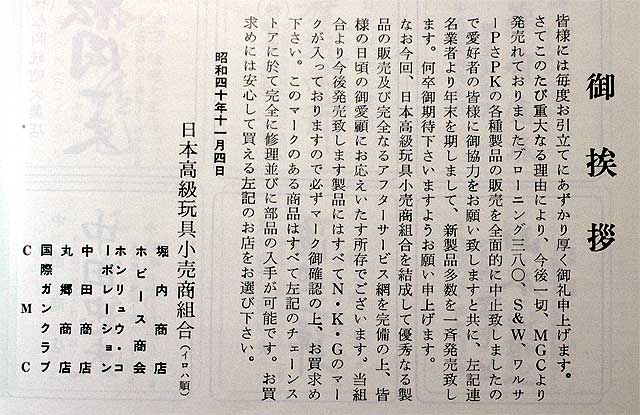 御挨拶
皆様には毎度お引立てにあずかり厚く御礼申上げます。
さてこのたび重大なる理由により、今後一切、MGCより
発売れておりましたブローニング三八〇、S&W、ワルサ
ーPさPKの各種製品の販売を全面的に中止致しましたの
で愛好者の皆様に御協力をお願い致しますと共に、左記連
名業者より年末を期しまして、新製品多数を一斉発売致し
ます。何卒御期待下さいますようお願い申上げます。
なお今回、日本高級玩具小売商組合を結成して優秀なる製
品の販売及び完全なるアフターサービス網を完備の上、皆
様の日頃の御愛顧にお応えいたす所存でございます。当組
合より今後発売致します製品にはすべてN・K・Gのマー
クが入っておりますので必ずマーク御確認の上、お買求め
下さい。このマークのある商品はすべて左記のチェーンス
トアに於て完全に修理並びに部品の入手が可能です。お買
求めには安心して買える左記のお店をお選び下さい。
昭和四十年十一月四日
日本高級玩具小売商組合(イロハ順)
堀内商店
ホビース商会
ホンリュウ・コ
ーポレーション
中田商店
丸郷商店
国際ガンクラブ
CMC